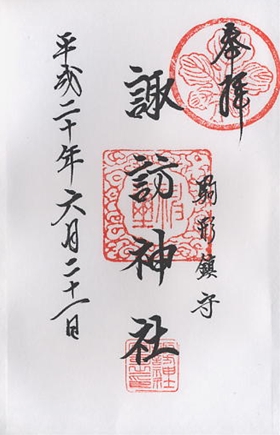 奉拝
駒形鎮守
諏訪神社
平成二十年六月二十一日